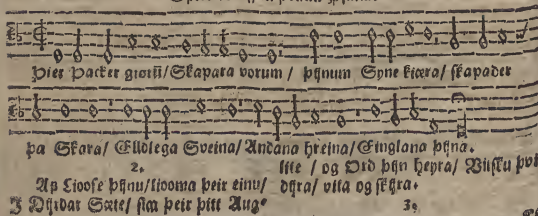 Þier Þacker giørū/ Skapara vorum/ þijnum Syne kiæra/ skapader
þa Skara/ Elldlega Sveina/ Andana hreina/ Einglana þijna.
2.
Ap Lioose þijnu/ liooma þeir einu/
J Dyrdar Sæte/ siaa þeir þitt
lite / og Ord þijn heyra/ Visku
dyra/ vita og skyra.
3.